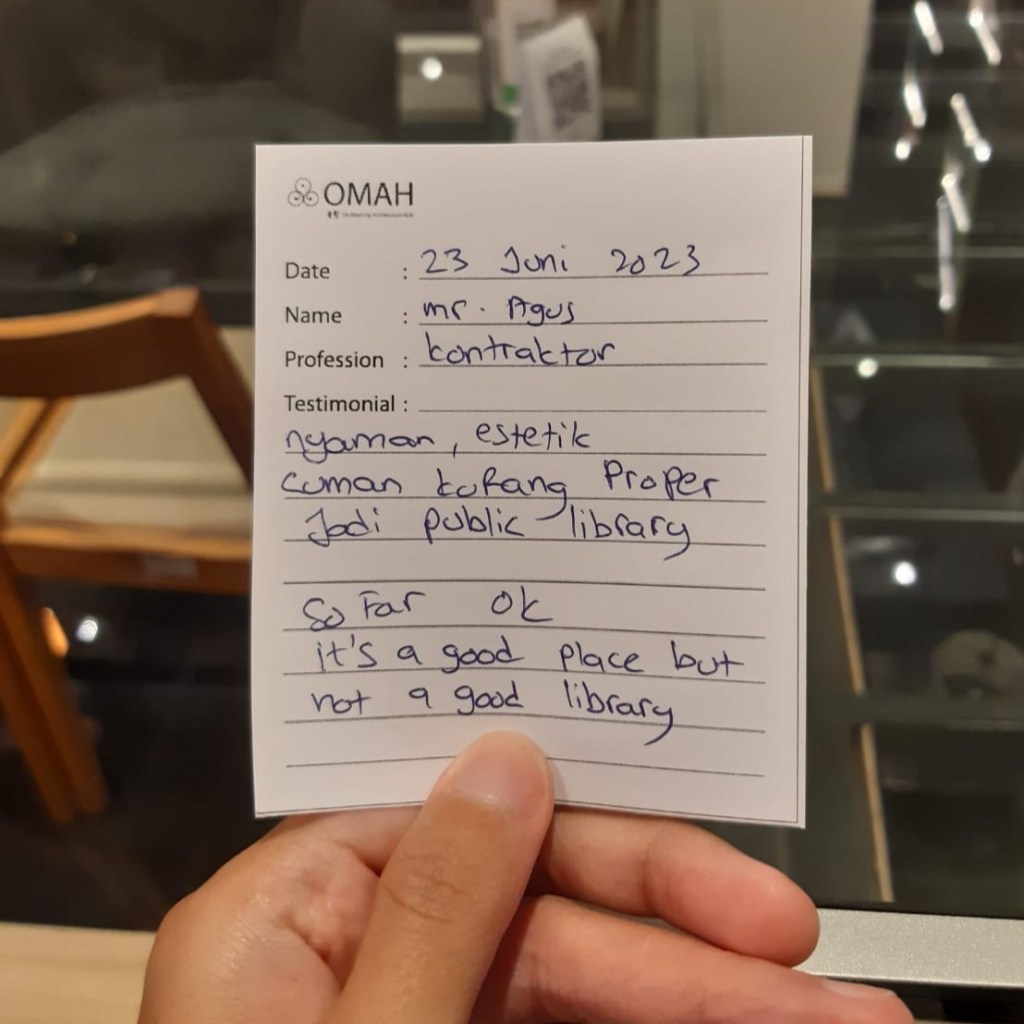 OMAH
Date : 23 Juni 2023
Name : mr. Agus
Profession : kontraktor
Testimonial :
nyaman, estetik
cuman kurang Proper
Jadi public library
So Far ok
it's a good place but
not a good library